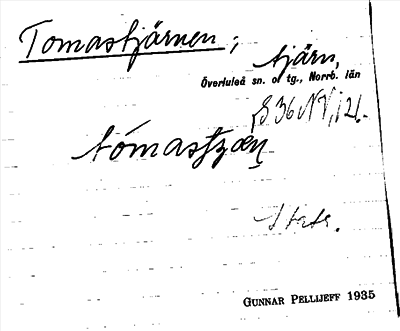 Tomastjärnen; tjärn,
Överluleå sn. o. tg., Norrb. län
S 36 NV, i 21.
GUNNAR PELLIJEFF 1935